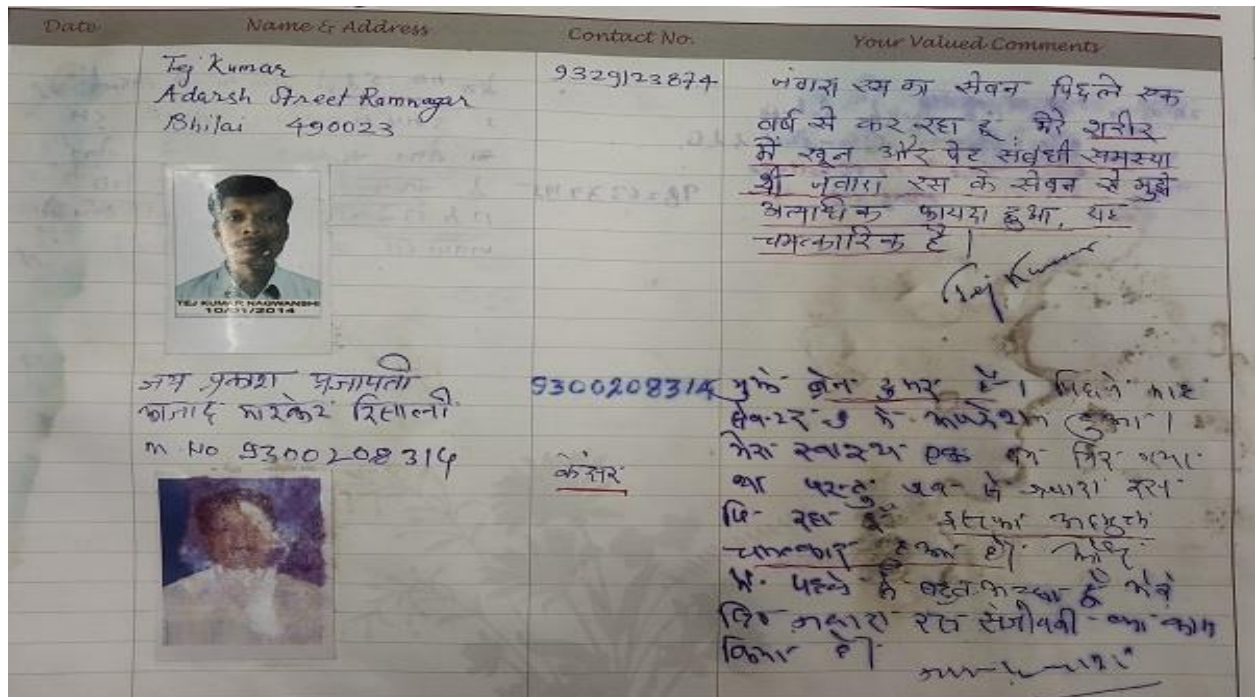 Date Name & Address Contact No. Your Valued Comments
Tej Kumar
Adarsh Street Ramnagar
Bhilai 490023
9329123874
जंवारा रस का सेवन पिछले एक
वर्ष से कर रहा हूं, मेरे शरीर
में खून और पेट संबंधी समस्या
थी जंवारा रस के सेवन से मुझे
अत्याधिक फायदा हुआ, यह
चमत्कारिक है।
Tej Kumar
TEJ KUMAR NAGWANSHI
10/01/2014
जय प्रकाश प्रजापती
आजाद मारकेट रिसाली
m No 9300208314
9300208314
केंसर
मुझे ब्रेन टुमर है। पिछले माह
में आपरेशन हुआ।
मेरा स्वास्थ्य एक दम गिर गया
था परन्तु जब से जवारा रस
पि रहा हूँ इसका अदभुत
चमत्कार हुआ है।
मैं पहले से बहुत अच्छा हूँ मेरे
लिए जवारा रस संजीवनी का काम
किया है।